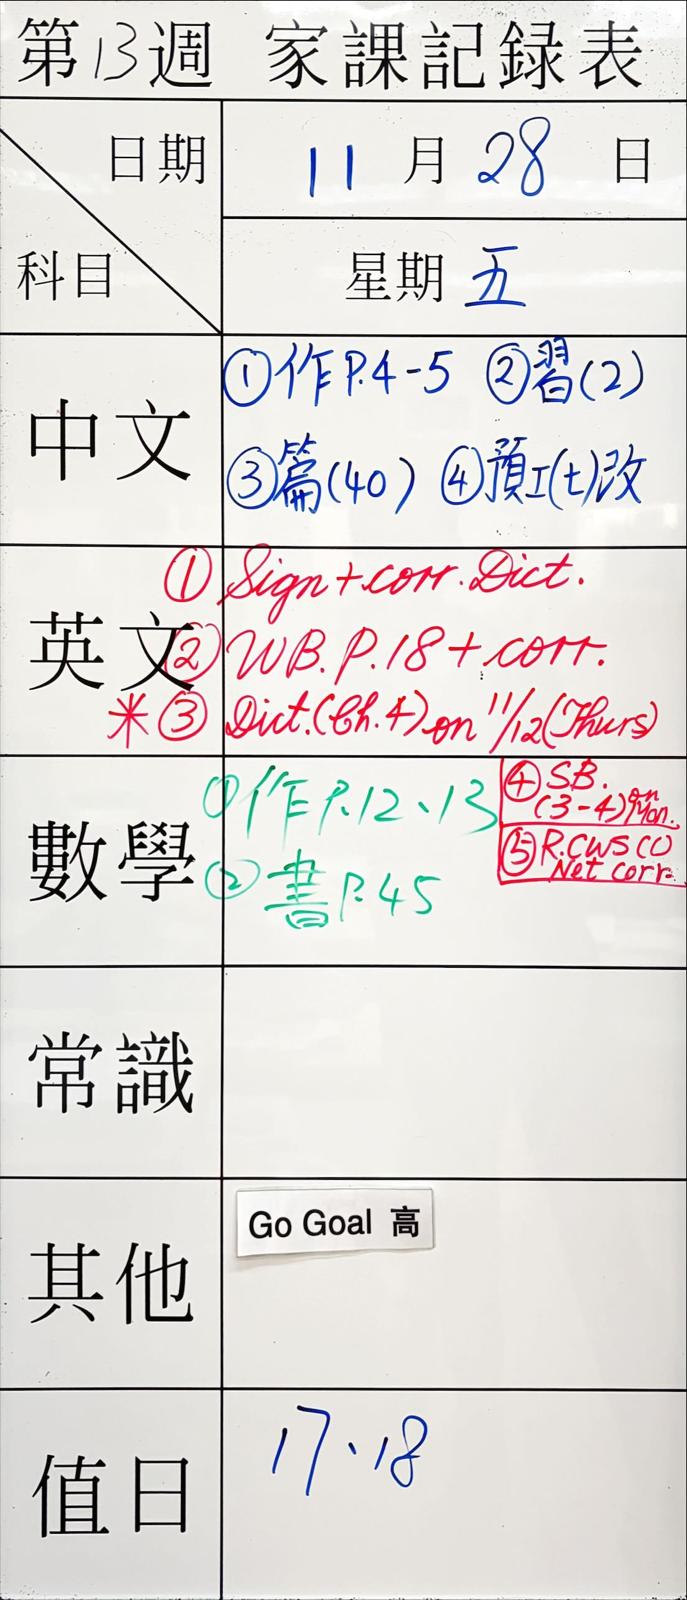 第13週 家課記録表
日期 11月28日
科目 星期五
中文 ①作P.4-5 ②習(2)
③篇(40) ④預工(七)改
英文 ① Sign + corr. Dict.
② WB. P.18 + corr.
*③ Dict. (Ch.4) on 11/12 (Thurs)
④ SB. (3-4) on Mon.
⑤ R.CWS(1)
Net corr.
數學 ①作P.12、13
②書P.45
常識
其他 Go Goal 高
值日 17、18